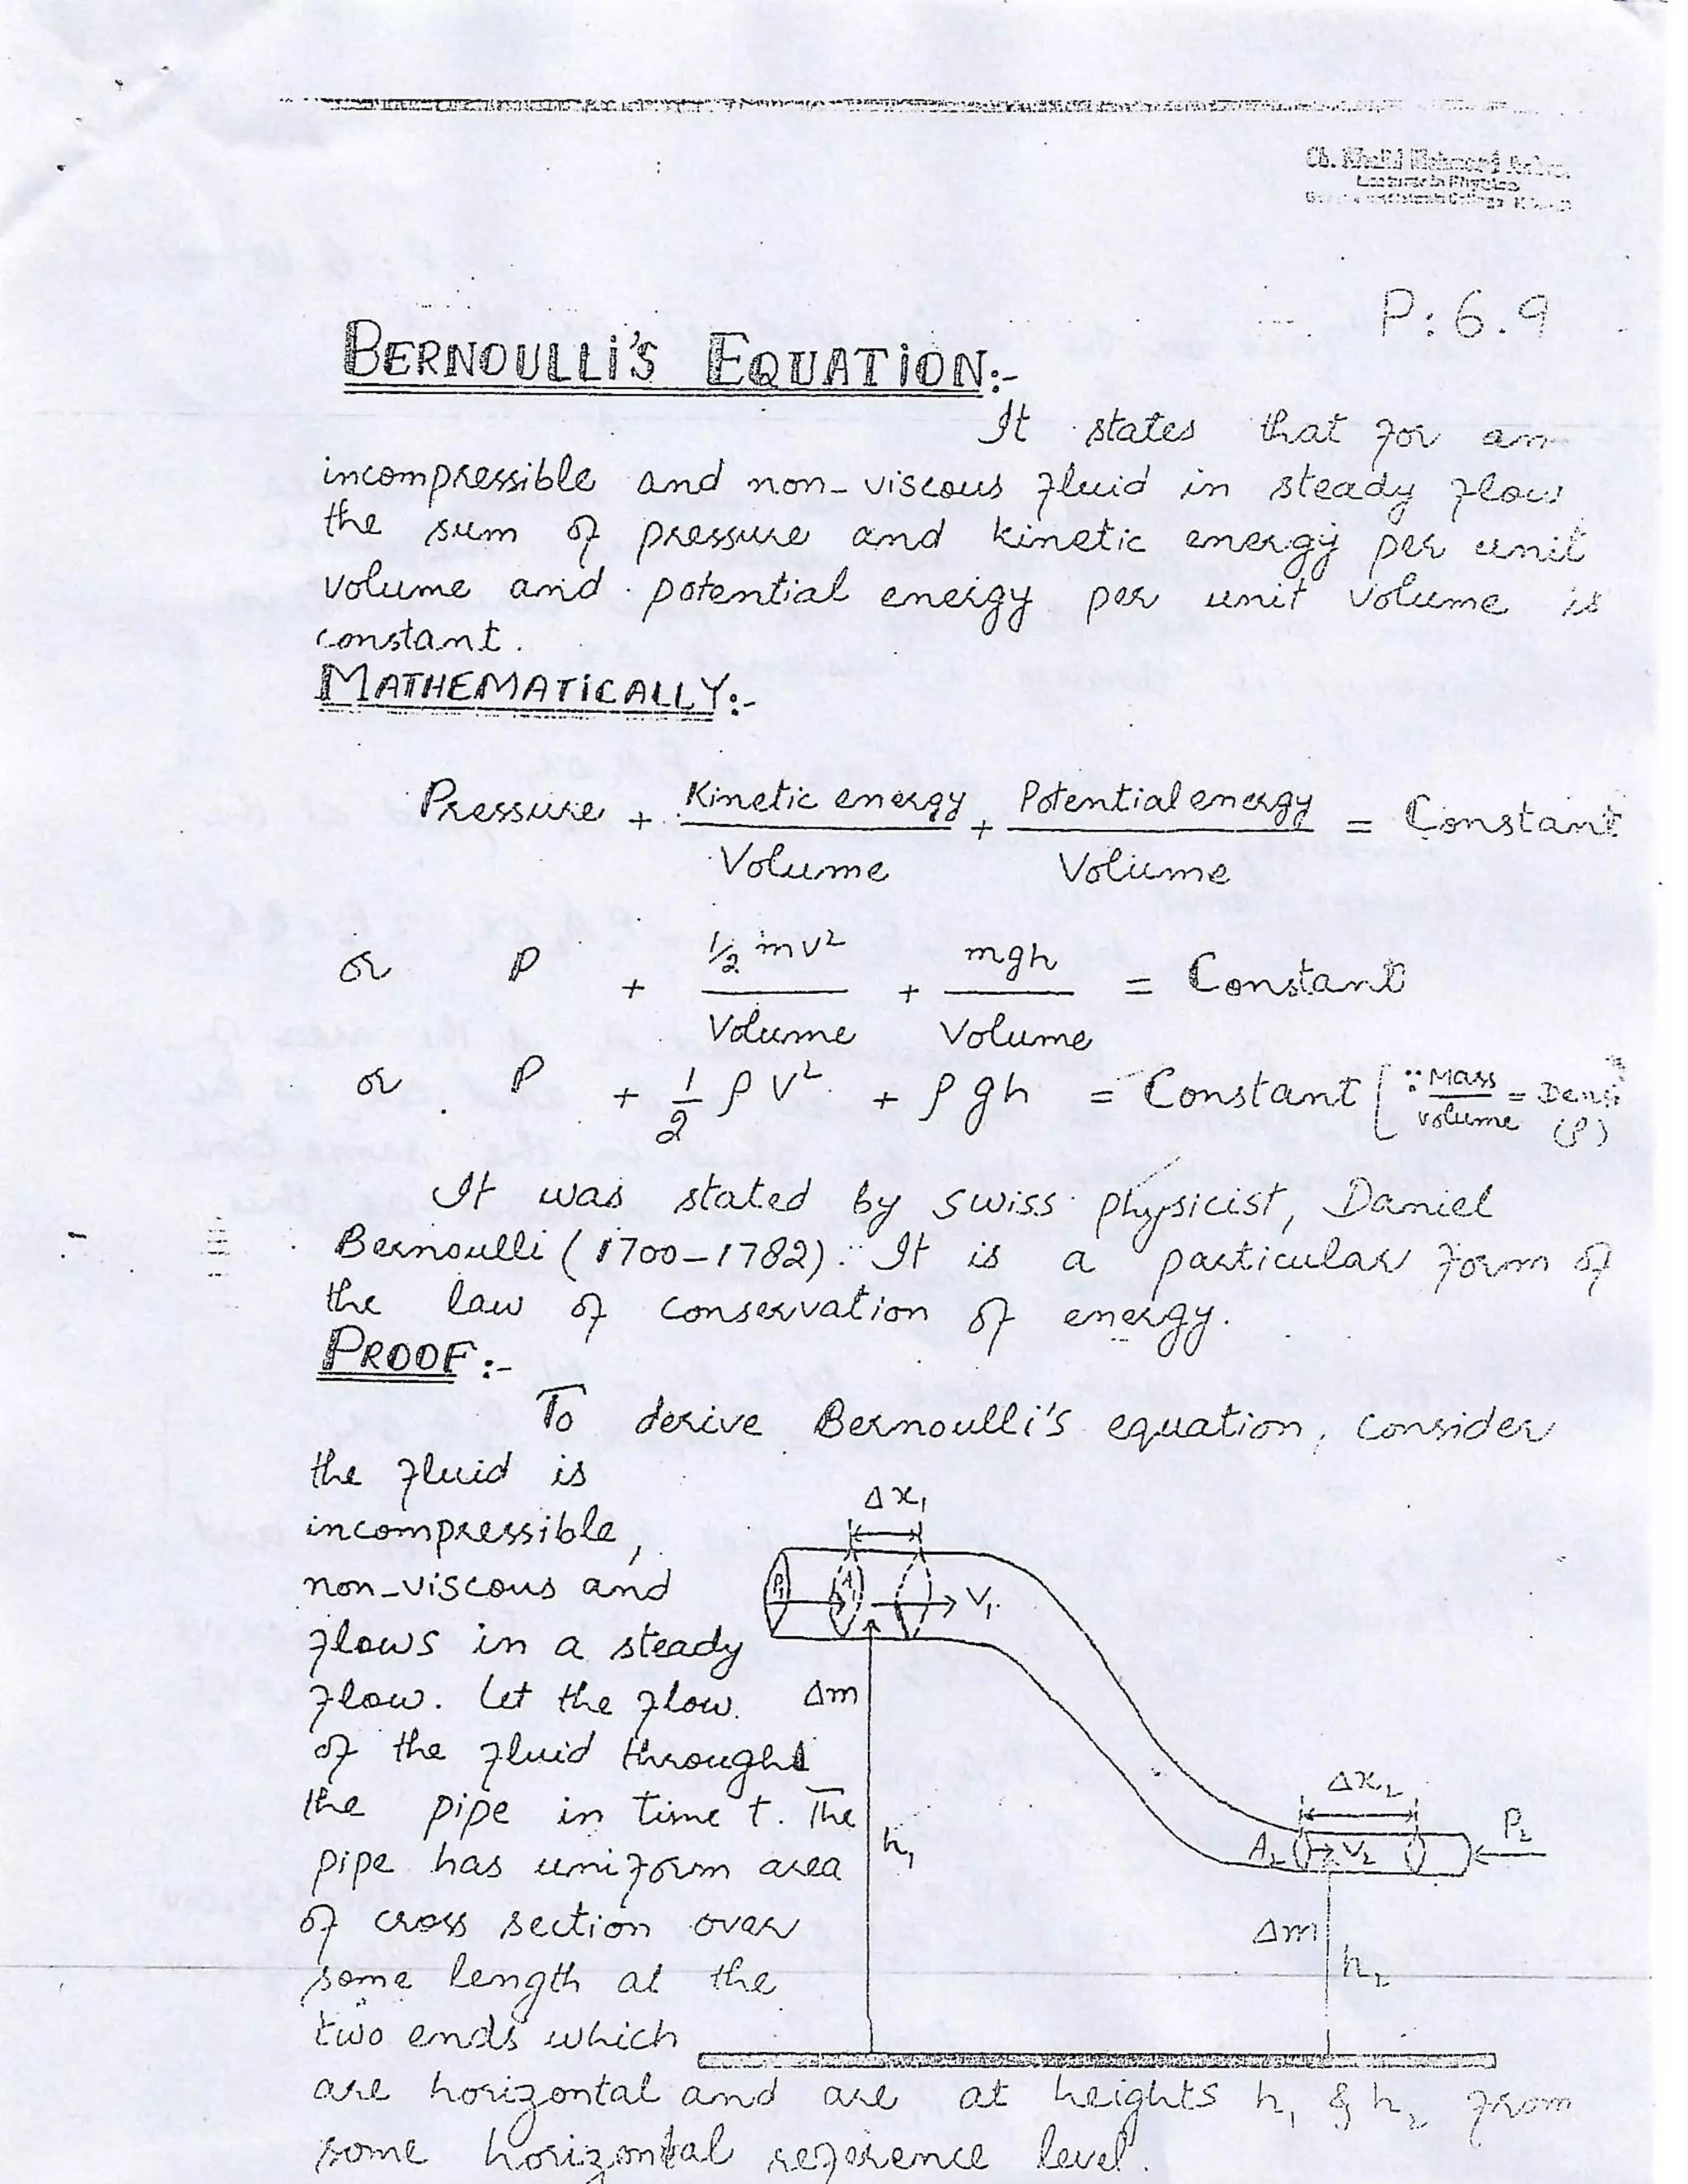 Lecturer in Physics
P:6.9
BERNOULLI'S EQUATION:-
It states that for an
incompressible and non-viscous fluid in steady flow
the sum of pressure and kinetic energy per unit
volume and potential energy per unit volume is
constant.
MATHEMATICALLY:-
Pressure + Kinetic energy / Volume + Potential energy / Volume = Constant
or P + ½ mv² / Volume + mgh / Volume = Constant
or P + 1/2 ρ v² + ρ gh = Constant [∵ Mass / volume = (ρ)
It was stated by swiss physicist, Daniel
Bernoulli (1700-1782). It is a particular form of
the law of conservation of energy.
PROOF:-
To derive Bernoulli's equation, consider
the fluid is
incompressible,
non-viscous and
flows in a steady
flow. Let the flow
of the fluid throught
the pipe in time t. The
pipe has uniform area
of cross section over
some length at the
two ends which
are horizontal and are at heights h₁ & h₂ from
some horizontal reference level.
Δx₁
P₁ A₁ V₁
Δm
h₁
Δx₂
A₂ V₂ P₂
Δm
h₂